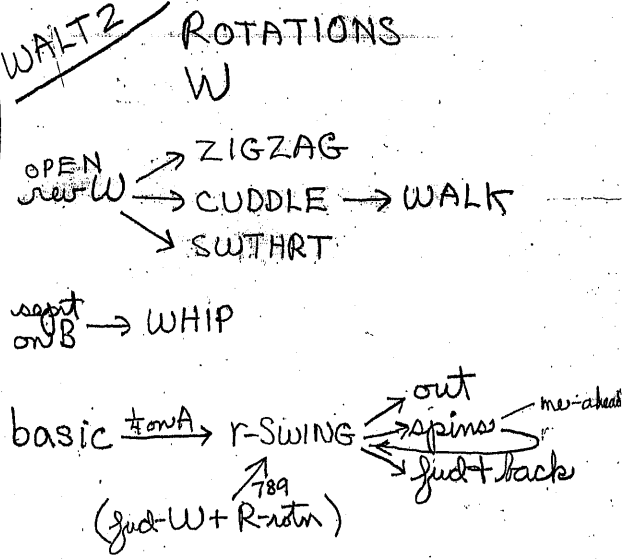 WALTZ
ROTATIONS
W
OPEN
rev-W → ZIGZAG
→ CUDDLE → WALK
→ SWTHRT
on B → WHIP
basic ¼ on A → r-SWING
→ out
→ spins — me-ahead
→ fwd + back
789
(fwd-W + R-rotn)